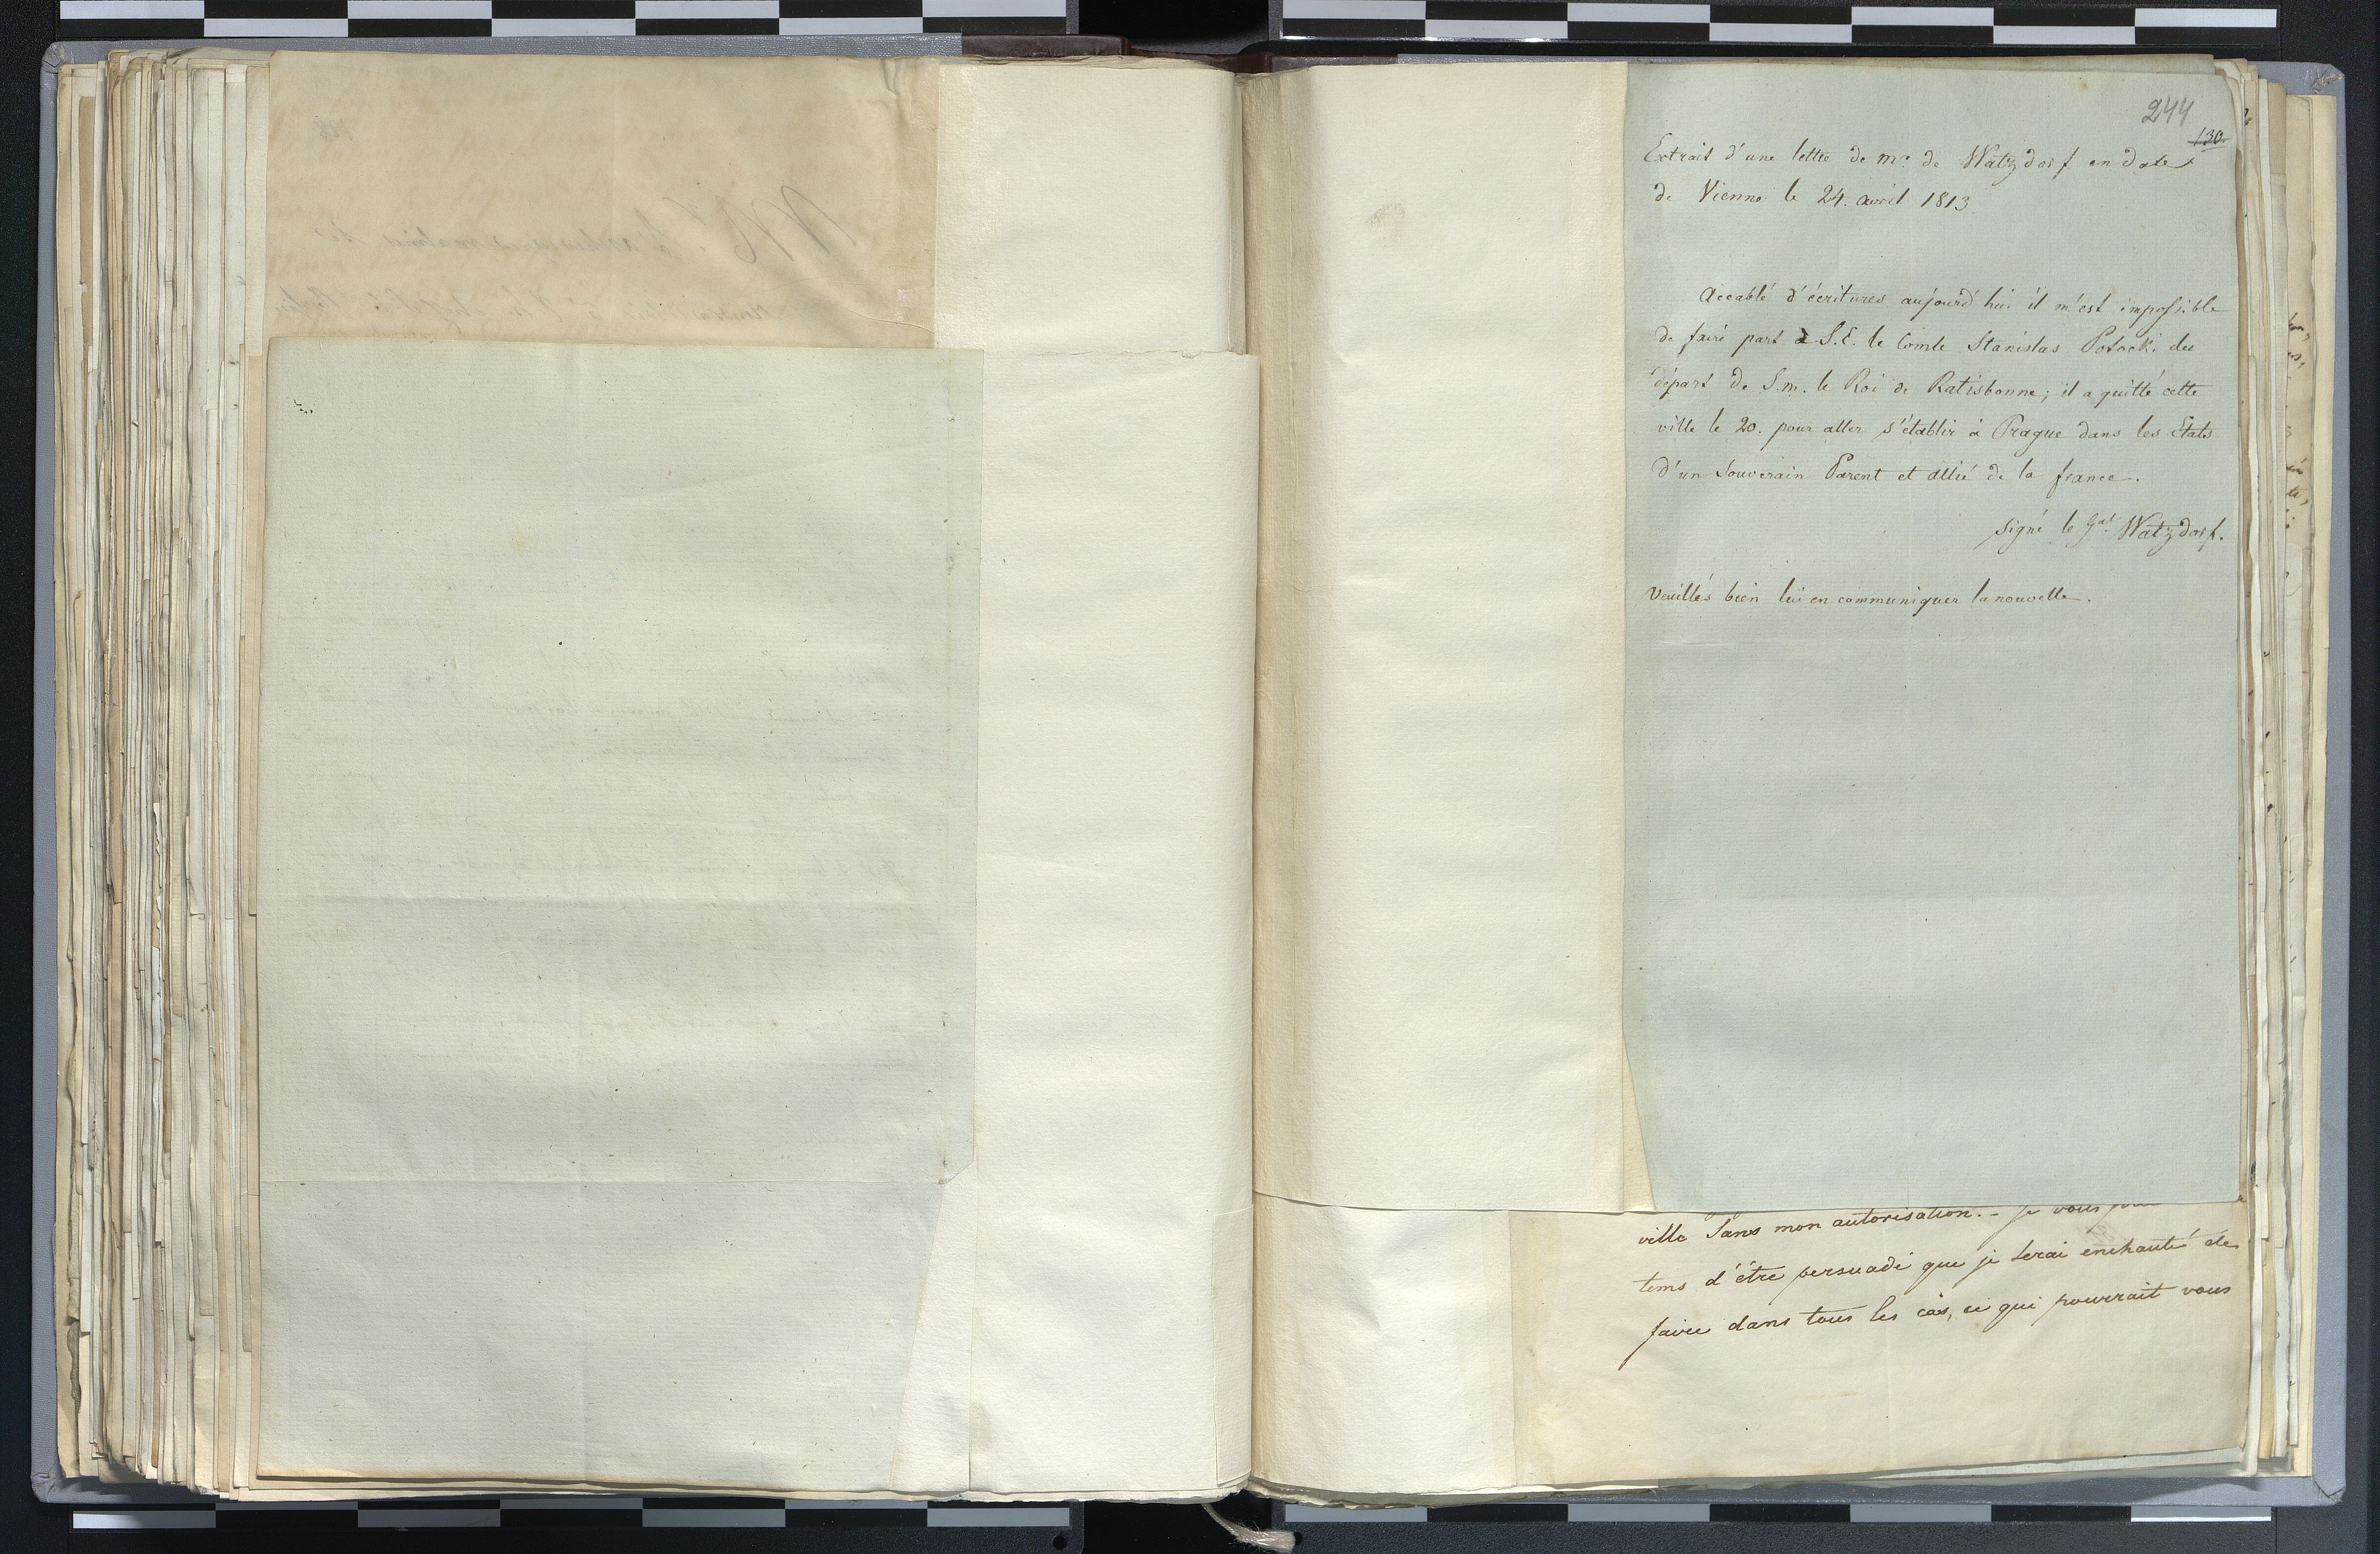 244
130
Extrait d'une lettre de Mr. de Watzdorf en date
de Vienne le 24. avril 1813.
Accablé d'écritures aujourd'hui il m'est impossible
de faire part à S.E. le Comte Stanislas Potocki du
départ de S.M. le Roi de Ratisbonne; il a quitté cette
ville le 20. pour aller s'établir à Prague dans les Etats
d'un Souverain Parent et allié de la france.
signé le Gal. Watzdorf.
Veuillés bien lui en communiquer la nouvelle.
ville sans mon autorisation. - je vous
tems d'être persuadé que je serai enchanté de
faire dans tous les cas, ce qui pourrait vous